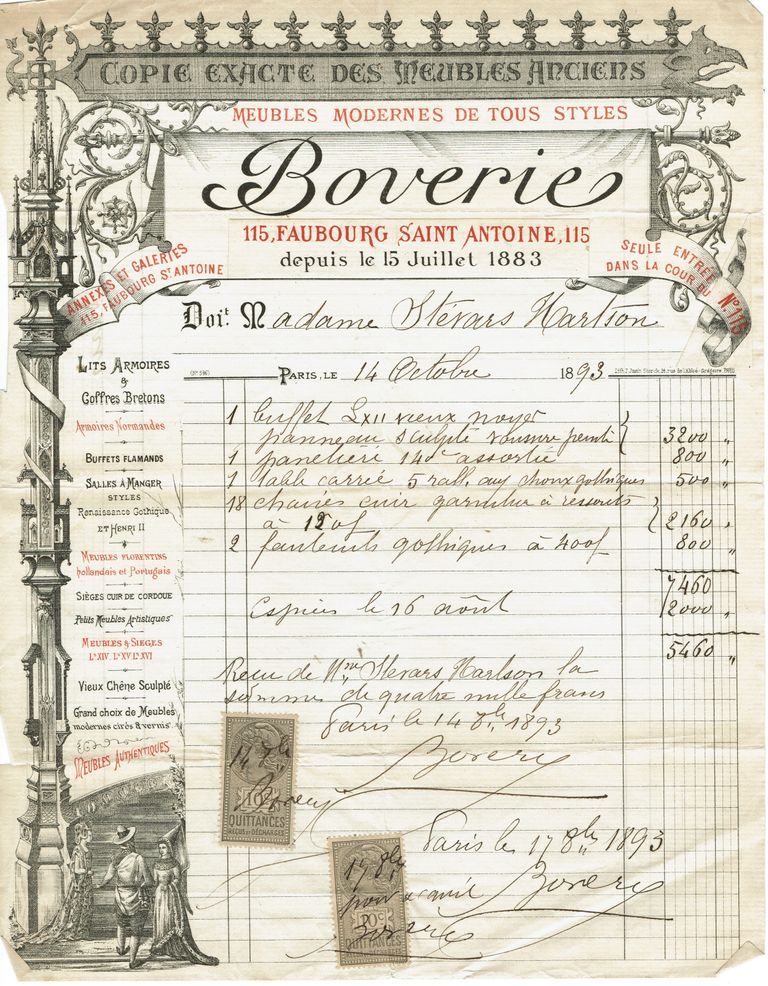 COPIE EXACTE DES MEUBLES ANCIENS
MEUBLES MODERNES DE TOUS STYLES
Boverie
115, FAUBOURG SAINT ANTOINE, 115
depuis le 15 Juillet 1883
ANNEXES ET GALERIES
115, FAUBOURG St ANTOINE
SEULE ENTRÉE
DANS LA COUR DU No 115
Doit Madame Stévars Hartson
PARIS, LE 14 Octobre 1893
LITS ARMOIRES
&
Coffres Bretons
Armoires Normandes
BUFFETS FLAMANDS
SALLES À MANGER
STYLES
Renaissance Gothique
ET HENRI II
MEUBLES FLORENTINS
hollandais et Portugais
SIÈGES CUIR DE CORDOUE
Petits Meubles Artistiques
MEUBLES & SIEGES
Ls XIV. Ls XV Ls XVI
VIEUX CHÊNE SCULPTÉ
Grand choix de Meubles
modernes cirés & vernis
MEUBLES AUTHENTIQUES
1 buffet LXII vieux noyer
panneau sculpté voussure peinte 3200 "
1 panetière assortie 800 "
1 table carrée 5 rall. aux choux gothiques 500 "
18 chaises cuir garniture à ressorts
à 120f 2160 "
2 fauteuils gothiques à 400f 800 "
7460
Espèces le 16 août 2000 "
5460 "
Recu de Mme Stevars Hartson la
somme de quatre mille francs
Paris le 14 8bre 1893
Bovery
14 8bre
Bovery
10c
QUITTANCES
REÇUS ET DÉCHARGES
Paris le 17 8bre 1893
Bovery
17 8bre
pour acquit
Bovery
QUITTANCES